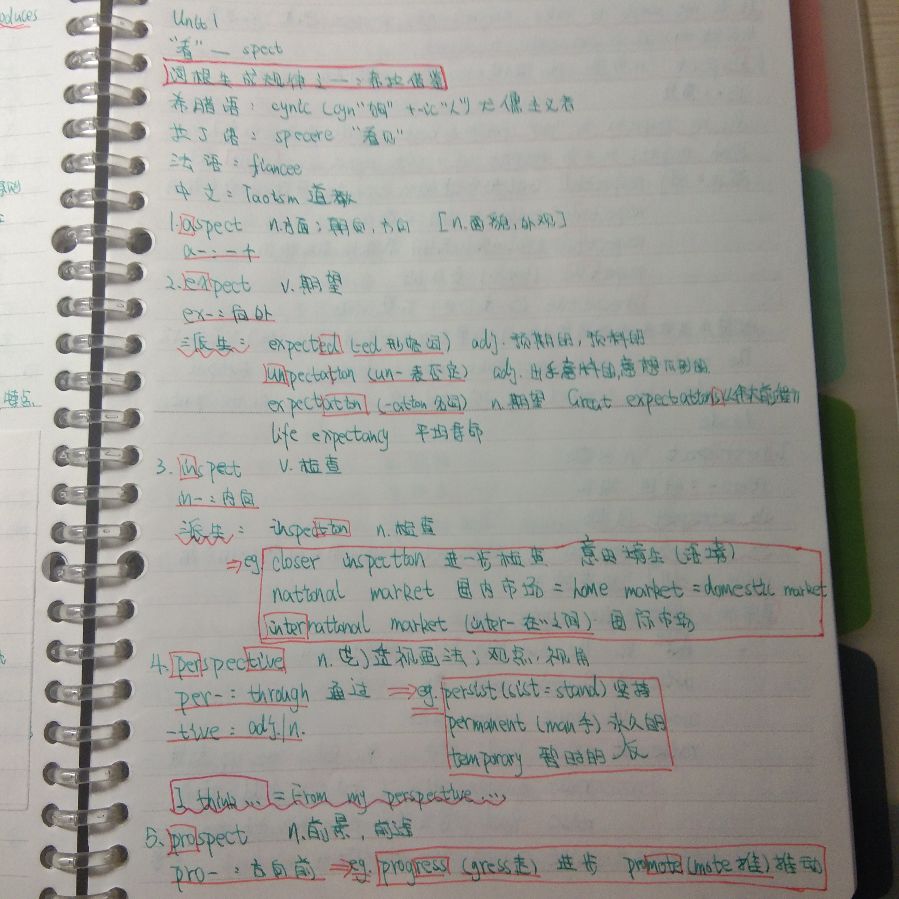 oduces
Unit 1
"看" — spect
词根生成规律之一：希拉借鉴
希腊语：cynic (cyn"姆" + -ic"人") 犬儒主义者
拉丁语：specere "看见"
法语：fiancee
中文：Taoism 道教
1. aspect n.方面；朝向,方向 [n.面貌,外观]
a-：一个
2. expect v.期望
ex-：向外
派生：expected (-ed 形容词) adj.预期的,预料的
unpectation (un- 表否定) adj.出乎意料的,意想不到的
expectation (-ation 名词) n.期望 Great expectations
life expectancy 平均寿命
3. inspect v.检查
in-：内向
派生：inspection n.检查
⇒eg. closer inspection 进一步检查 (语境)
national market 国内市场 = home market = domestic market
international market (inter- 在…之间) 国际市场
4. perspective n.透视画法；观点,视角
per-：through 通过 ⇒eg. persist (sist = stand) 坚持
permanent (man手) 永久的
-tive：adj./n.
temporary 暂时的 反
I think... = From my perspective...
5. prospect n.前景,前途
pro-：方向前 ⇒eg. progress (gress走) 进步 promote (mote 推) 推动
特点